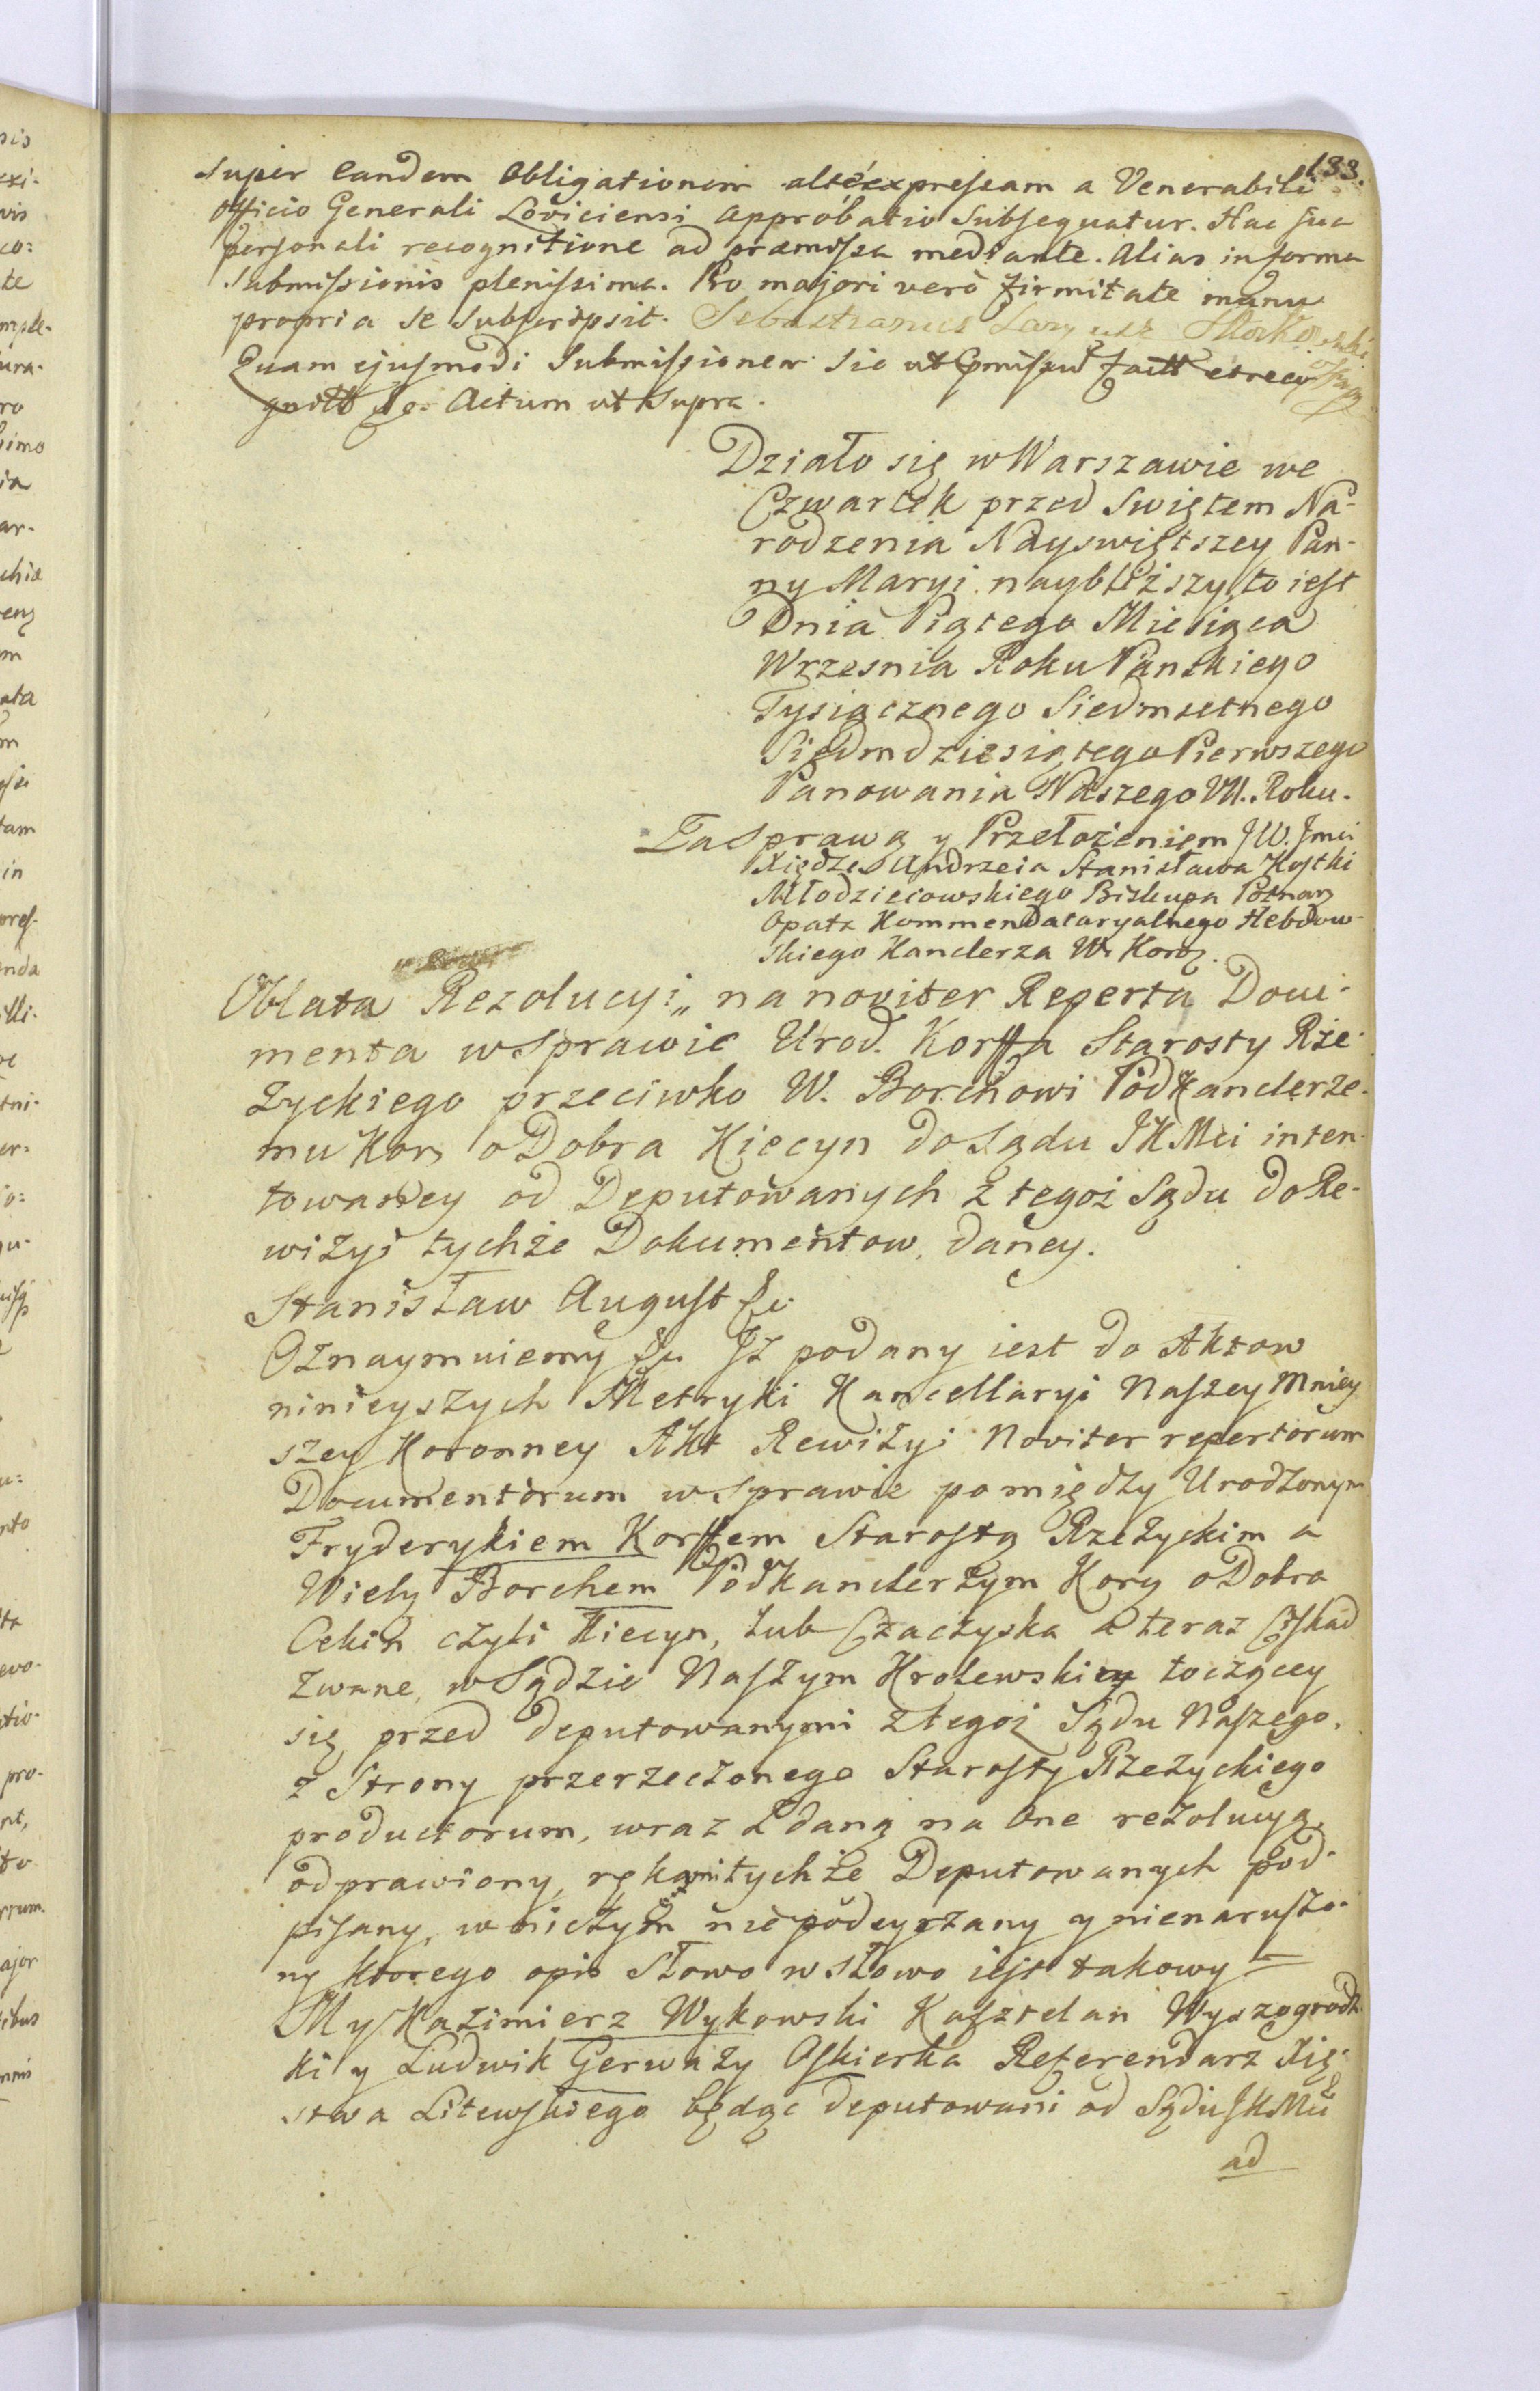 133.
super eandem Obligationem alté expressam a Venerabili
Officio Generali Loviciensi approbatio subsequatur. Hac sua
personali recognitione ad præmissa mediante. Alias in forma
submissionis plenissima. Pro majori verò firmitate manu
propria se subscripsit. Sebastianus
Quam ejusmodi Submissionem sic ut pmissũ facitt et recog
gnitt &c. Actum ut supra.
Działo się w Warszawie we
Czwartek przed Swiętem Na-
rodzenia Nayswiętszey Pan-
ny Maryi naybliższy, to iest
Dnia Piątego Miesiąca
Wrzesnia Roku Panskiego
Tysiącznego Siedmsetnego
Siedmdziesiątego Pierwszego
Panowania Naszego VII. Roku.
Za Sprawą y Przełożeniem JW. Jmci
Xiędza Andrzeia Stanisława Kostki
Młodzieiowskiego Biskupa Poznan
Opata Kommendataryalnego Hebdow-
skiego Kanclerza W. Koro.
Oblata Rezolucyi „ na noviter Reperta Docu-
menta w Sprawie Urod. Korffa Starosty Rze-
życkiego przeciwko W. Borchowi Podkanclerze-
mu Kor. o Dobra Kiecyn do Sądu JKMci inten-
towaney od Deputowanych z tegoż Sądu do Re-
wizyi tychże Dokumentow, daney.
Stanisław August &c.
Oznaymuiemy &c. Iż podany iest do Aktow
ninieyszych Metryki Kancellaryi Naszey Mniey
szey Koronney Akt Rewizyi Noviter repertorum
Documentorum w sprawie pomiędzy Urodzonym
Fryderykiem Korffem Starostą Rzeżyckim a
Wielż Borchem Podkanclerzym Kory o Dobra
Cekin czyli Kiecyn, lub Czaczyska a teraz
zwane, w Sądzie Naszym Krolewskiey toczącey
się przed deputowanymi z tegoż Sądu Naszego,
z Strony przerzeczonego Starosty Rzeżyckiego
productorum, wraz z daną na one rezolucyą,
odprawiony, rękami tychże Deputowanych pod-
pisany, w niczym nie podeyrzany y nienaruszo-
ny ktorego opis słowo w słowo iest takowy =
My Kazimierz Wykowski Kasztelan Wyszogrodz-
ki y Ludwik Gerwazy Oskierka Referendarz Xię-
stwa Litewskiego będąc deputowani od Sądu JKMci
ad